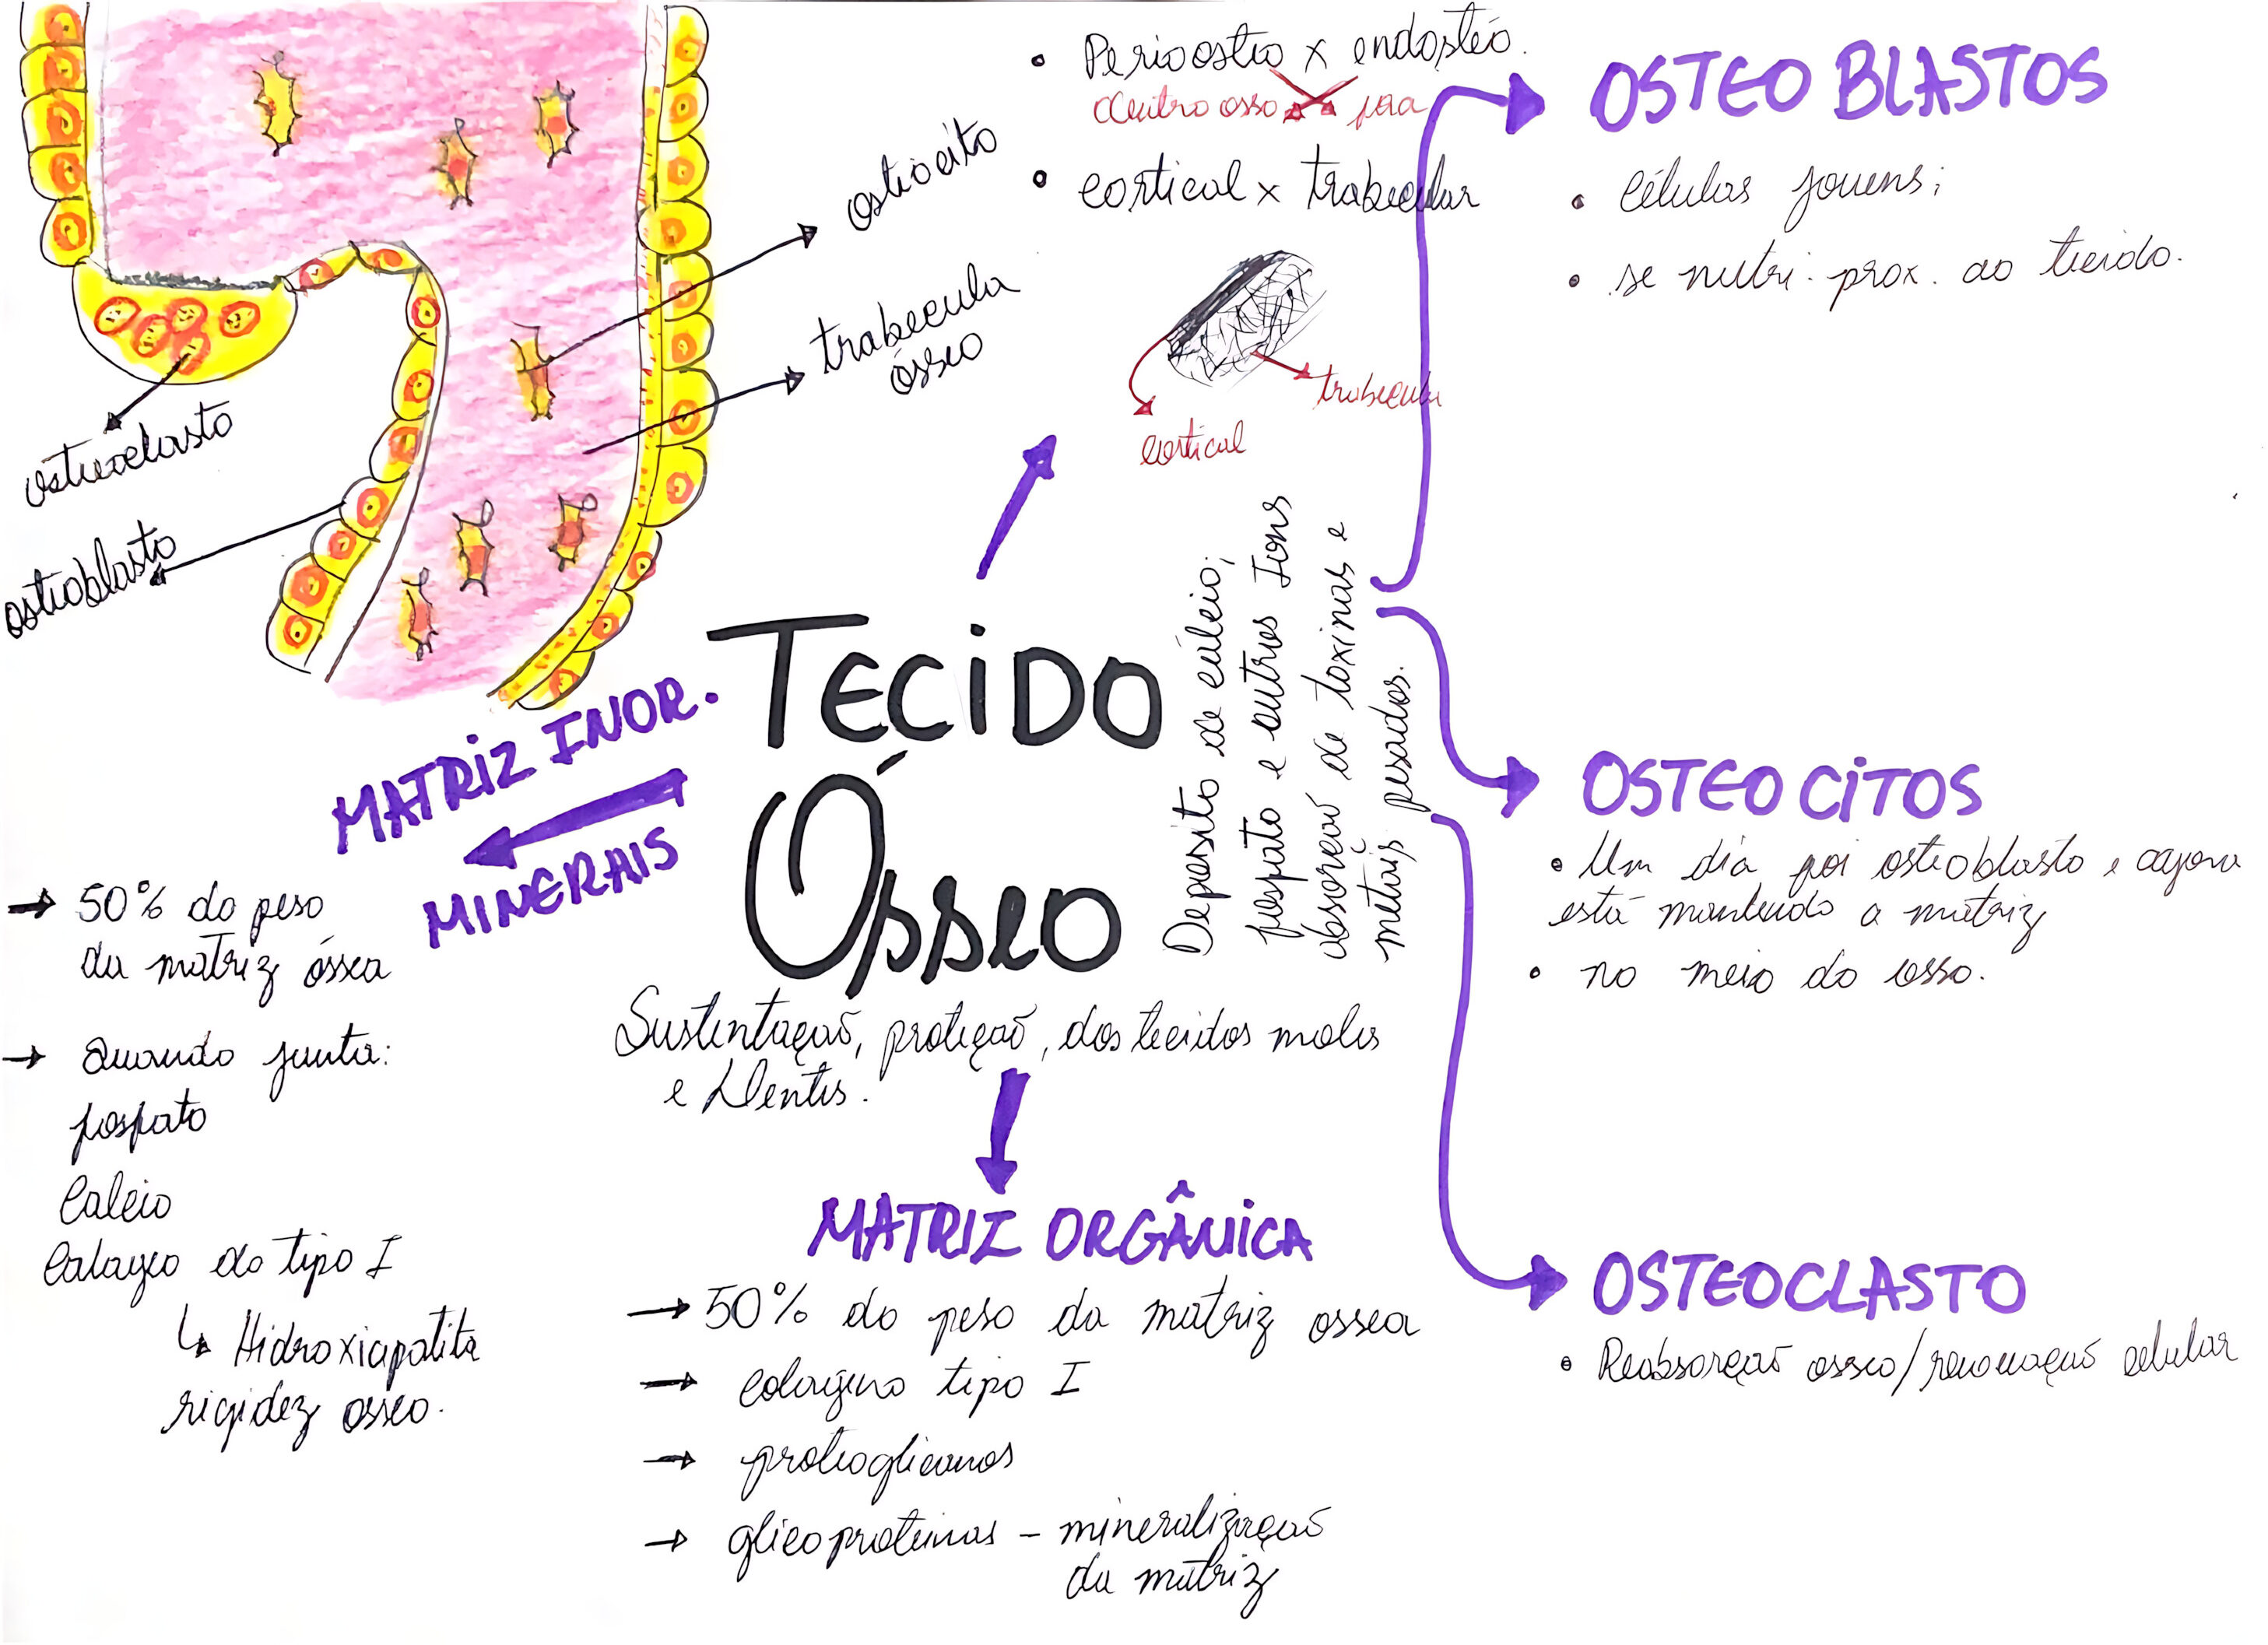 osteocito
trabecula
ósseo
osteoclasto
osteoblasto
• Perioostio x endostéo.
dentro osso fora
• cortical x trabecular
trabecula
cortical
TECIDO
ÓSSEO
Sustentação, proteção, dos tecidos moles
e Dentes.
Deposito de cálcio,
fosfato e outros Ions
absoreção de toxinas e
metais pesados.
OSTEO BLASTOS
• Células jovens;
• se nutri. prox. ao tecido.
OSTEO CITOS
• Um dia foi osteoblasto e agora
está mantendo a matriz
• no meio do osso.
OSTEOCLASTO
• Reabsorção osseo/renovação celular
MATRIZ INOR.
MINERAIS
→ 50% do peso
da matriz óssea
→ Quando junta:
fosfato
Calcio
Colageo do tipo I
↳ Hidroxiapatita
rigidez osseo.
MATRIZ ORGÂNICA
→ 50% do peso da matriz ossea
→ colágeno tipo I
→ proteoglicanos
→ glicoproteinas - mineralização
da matriz